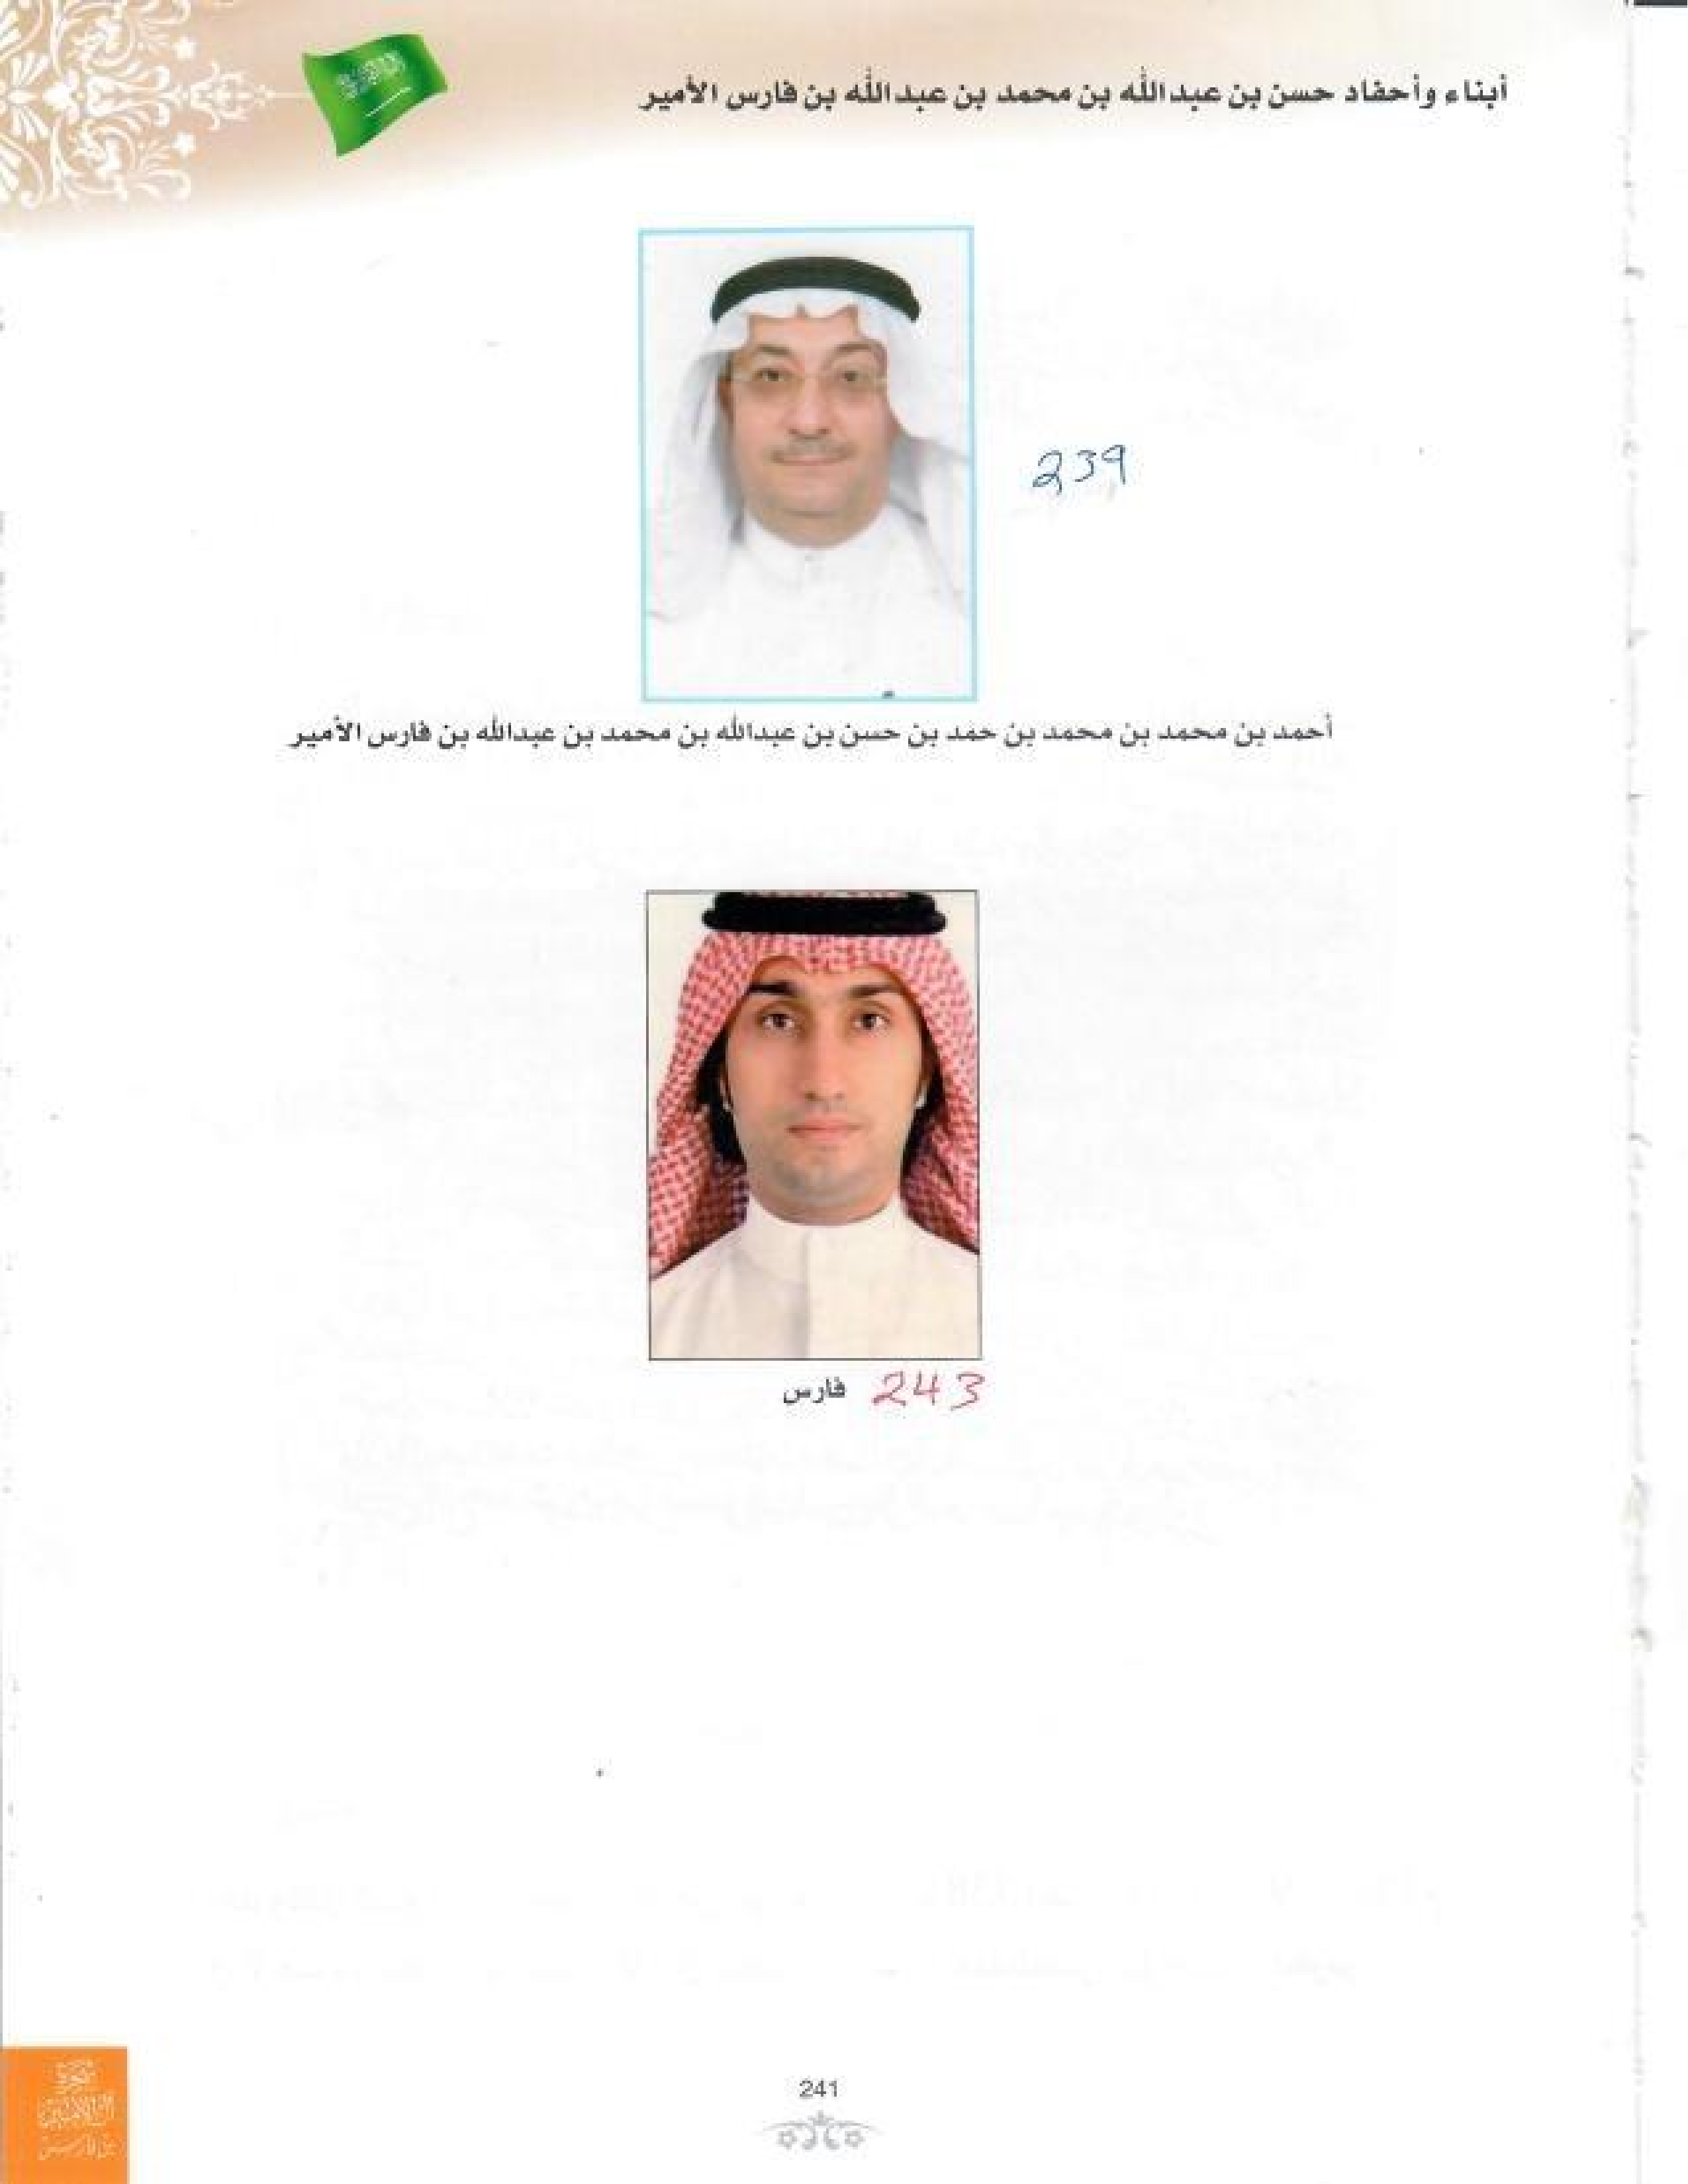 أبناء وأحفاد حسن بن عبدالله بن محمد بن عبدالله بن فارس الأمير
239
أحمد بن محمد بن محمد بن حمد بن حسن بن عبدالله بن محمد بن عبدالله بن فارس الأمير
فارس 243
241